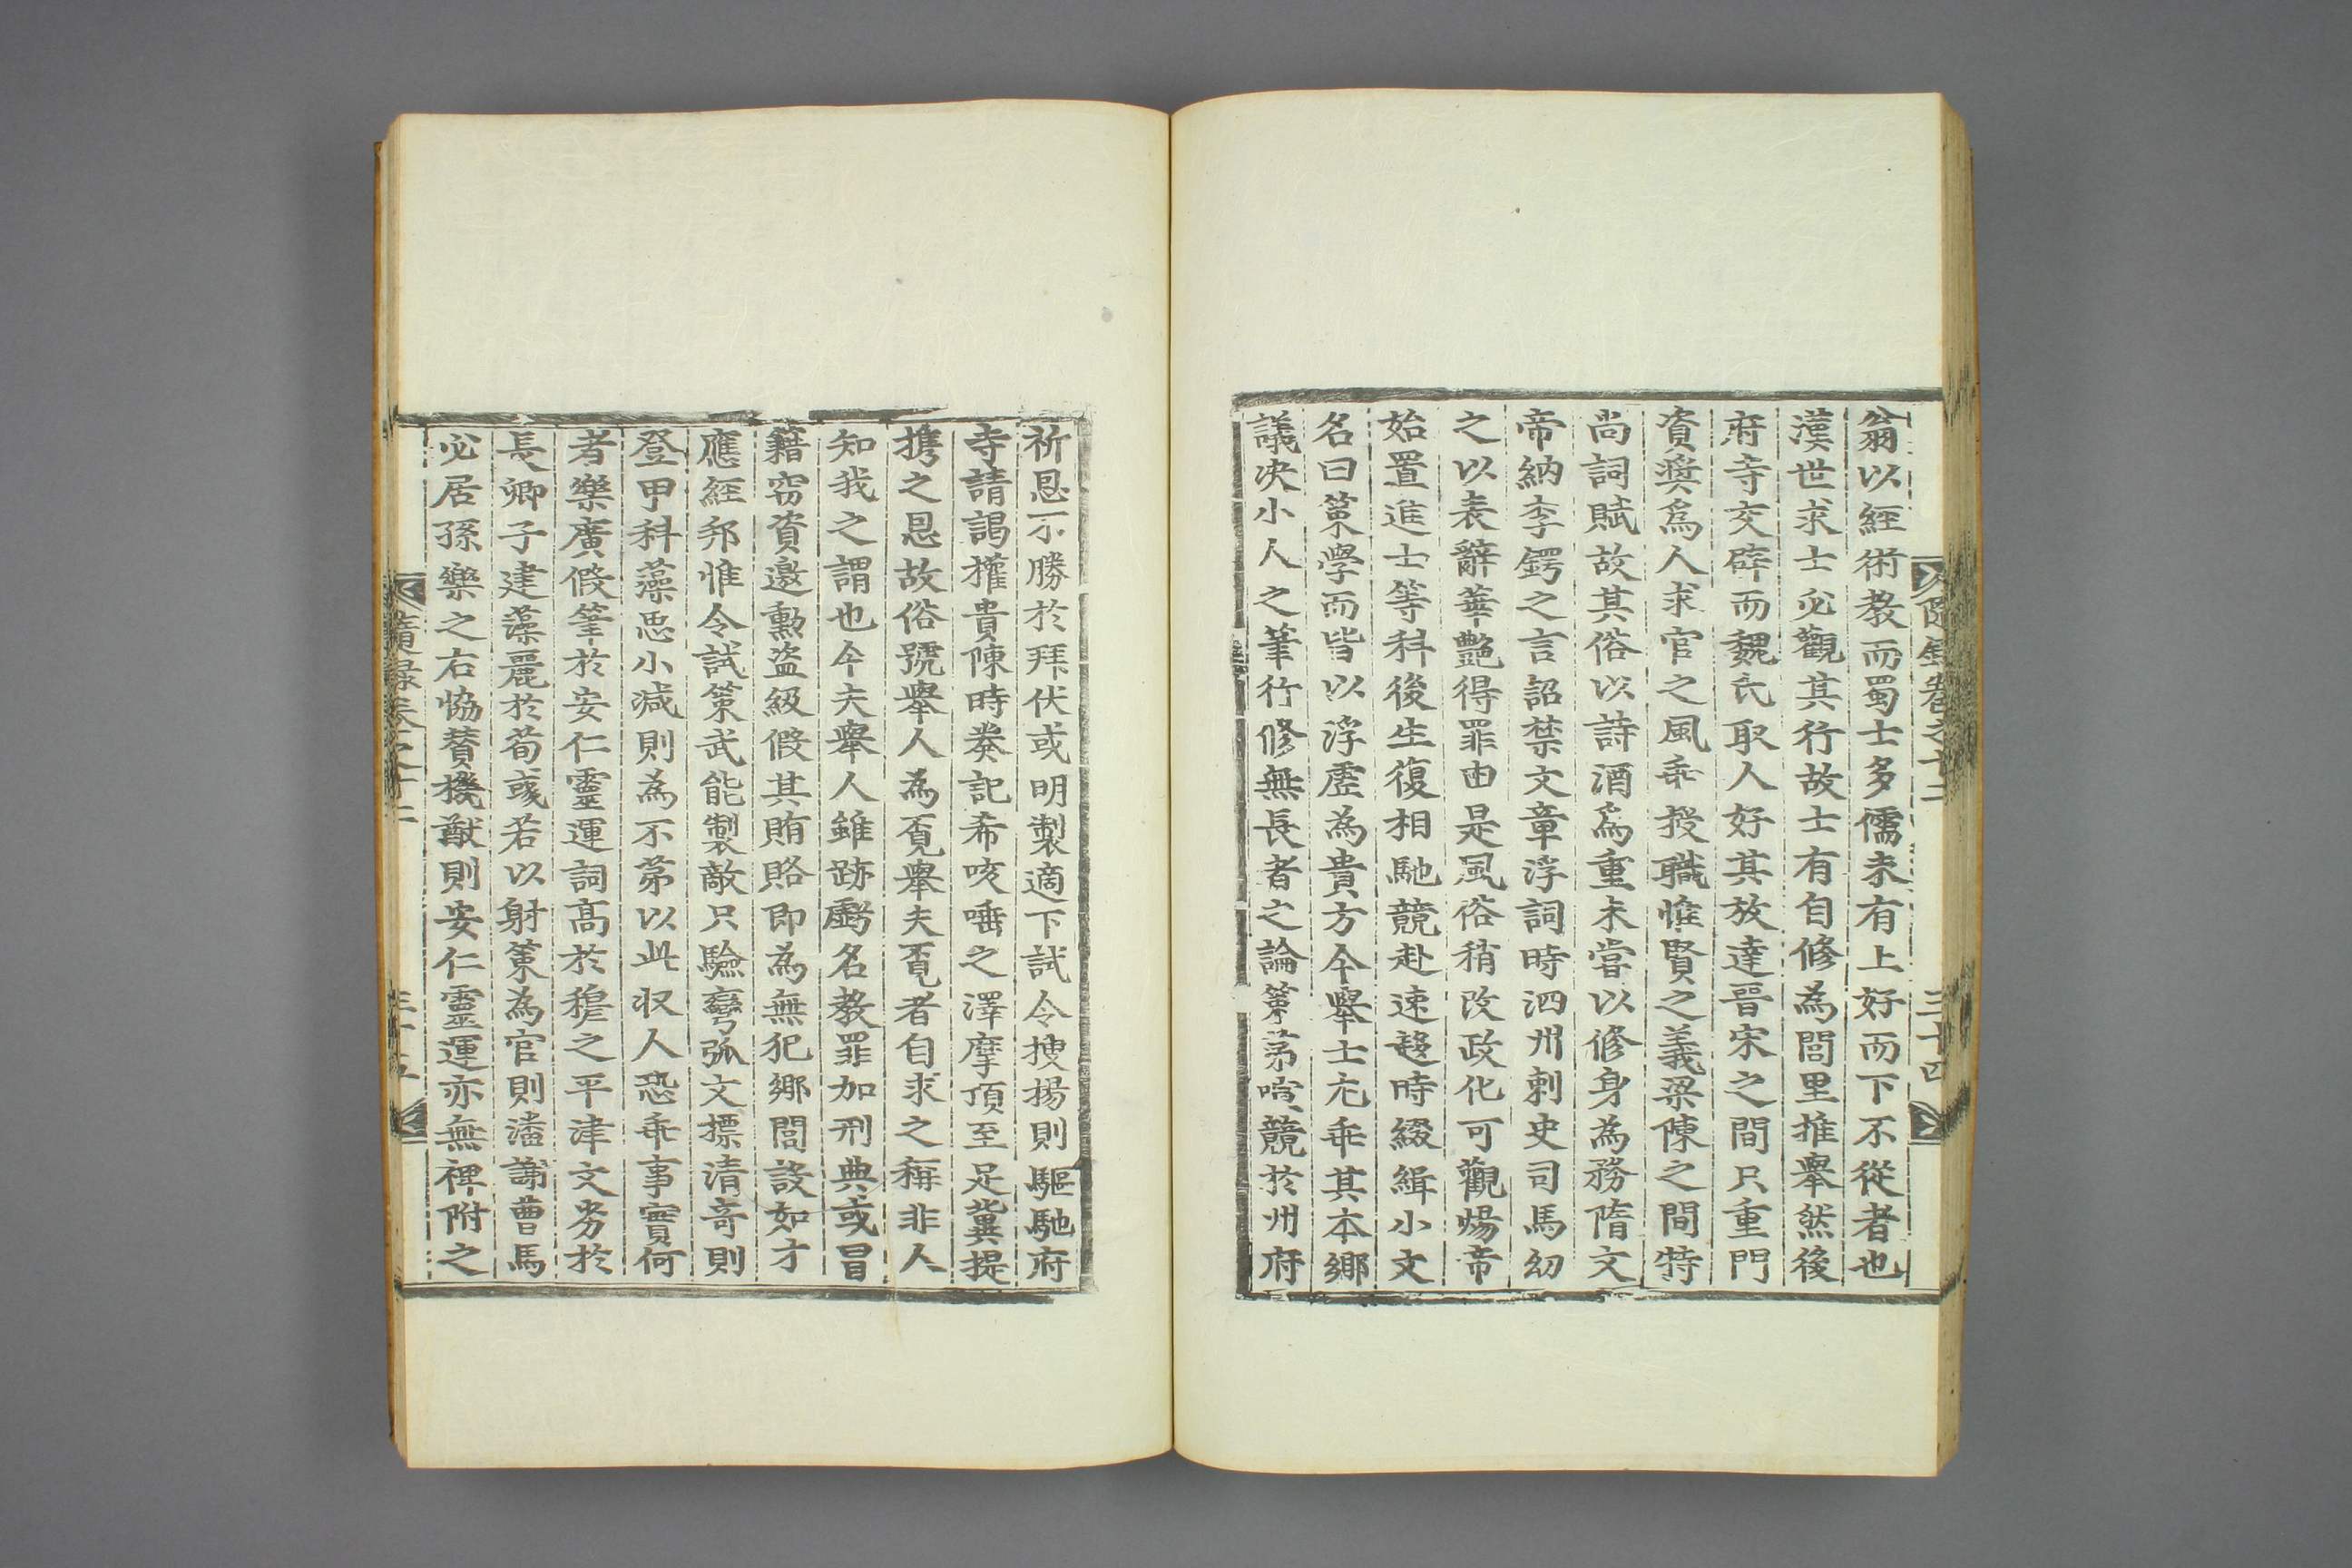 隨錄卷之十二
三十四
翁以經術教而蜀士多儒未有上好而下不從者也
漢世求士必觀其行故士有自修為閭里推舉然後
府寺交辟而魏氏取人好其放達晉宋之間只重門
資奬爲人求官之風乖授職惟賢之義梁陳之間特
尚詞賦故其俗以詩酒爲重未嘗以修身為務隋文
帝納李鍔之言詔禁文章浮詞時泗州刺史司馬幼
之以表辭華艶得罪由是風俗稍改政化可觀煬帝
始置進士等科後生復相馳競赴速趍時綴緝小文
名曰策學而皆以浮虛為貴方今舉士尤乖其本鄉
議决小人之筆行修無長者之論策第喧競於州府
祈恩不勝於拜伏或明製適下試令搜揚則驅馳府
寺請謁權貴陳時奏記希咳唾之澤摩頂至足冀提
携之恩故俗號舉人為覔舉夫覔者自求之稱非人
知我之謂也今夫舉人雖跡虧名教罪加刑典或冒
籍竊資邀勳盜級假其賄賂即為無犯鄉閭設如才
應經邦惟令試策武能製敵只驗彎弧文摽清奇則
登甲科藻思小減則為不第以此収人恐乖事實何
者樂廣假筆於安仁靈運詞高於穆之平津文劣於
長卿子建藻麗於荀彧若以射策為官則潘謝曹馬
必居孫樂之右恊賛機猷則安仁靈運亦無裨附之
隨錄卷之十二
三十五